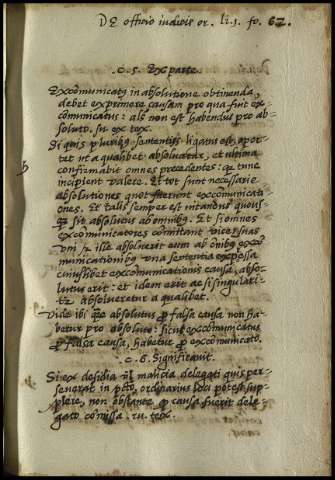 DE officio iudicis or. li. 1. fo. 62.
.c. 5. Ex parte.
Excommunicatꝰ in absolutione obtinenda,
debet exprimere causam pro qua fuit ex-
cōmunicatus: aliàs non est habendus pro ab-
soluto. su. ex tex.
Si quis pluribꝰ sententijs ligatus est, opor-
tet ut a qualibet absoluatur, et ultima
confirmabit omnes precedentes: que tunc
incipient valere. Et tot sunt necessarie
absolutiones quot fuerunt excōmunicati
ones. Et talis semper est intendus quousq̄
sit absolutus ab omnibꝰ. Et si omnes
excommunicatores comittant vices suas
uni ille absoluerit eum ab ōnibꝰ excō
municationibꝰ vna sententia expressa
cuiuslibet excommunicationis causa, abso-
lutus erit: et idem erit ac si singulari-
ter absolueretur a qualibet.
Vide ibi que absolutus ꝓ falsa causa non ha-
betur pro absoluto: sicut excōmunicatus
ꝓ falsa causa, habetur ꝓ excōmunicato.
.c. 6. Significauit.
Si ex desidia ul malicia delegati quis per-
seuerat in pctō, ordinarius loci potest sup-
plere, non obstante ꝙ causa fuerit dele-
gato comissa. su. tex.